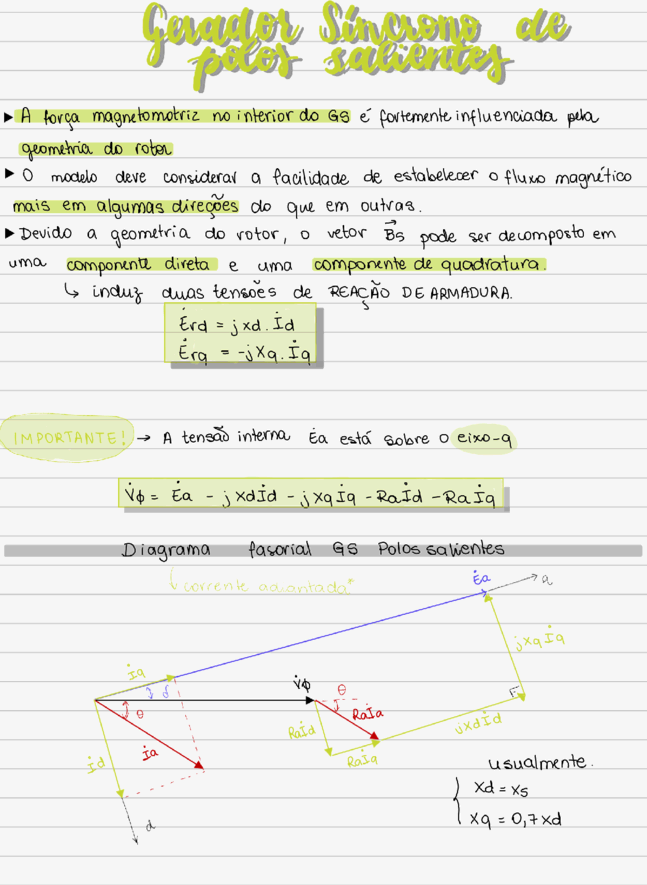 Gerador Síncrono de
polos salientes
▶ A força magnetomotriz no interior do GS é fortemente influenciada pela
geometria do rotor
▶ O modelo deve considerar a facilidade de estabelecer o fluxo magnético
mais em algumas direções do que em outras.
▶ Devido a geometria do rotor, o vetor B⃗s pode ser decomposto em
uma componente direta e uma componente de quadratura.
↳ induz duas tensões de REAÇÃO DE ARMADURA.
Ėrd = jxd.İd
Ėrq = -jXq.İq
IMPORTANTE! → A tensão interna Ėa está sobre o eixo-q
V̇φ = Ėa - jxdİd - jxqİq - Raİd - Raİq
Diagrama fasorial GS Polos salientes
↳ corrente adiantada*
Ėa
q
jxqİq
İq
δ
V̇φ
θ
θ
Raİa
Raİd
Raİq
jxdİd
İa
İd
d
usualmente.
{ xd = xs
xq = 0,7xd